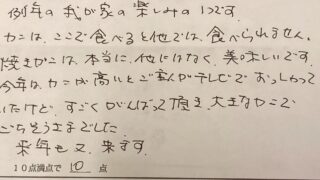 例年の我が家の楽しみの1つです。
カニは、ここで食べると他では、食べられません。
焼きガニは、本当に、他にはなく、美味しいです。
今年は、カニが高いとご主人がテレビでおっしゃって
いたけど、すごくがんばって頂き、大きなカニで
ごちそうさまでした。
来年も又、来ます。
10点満点で 10 点